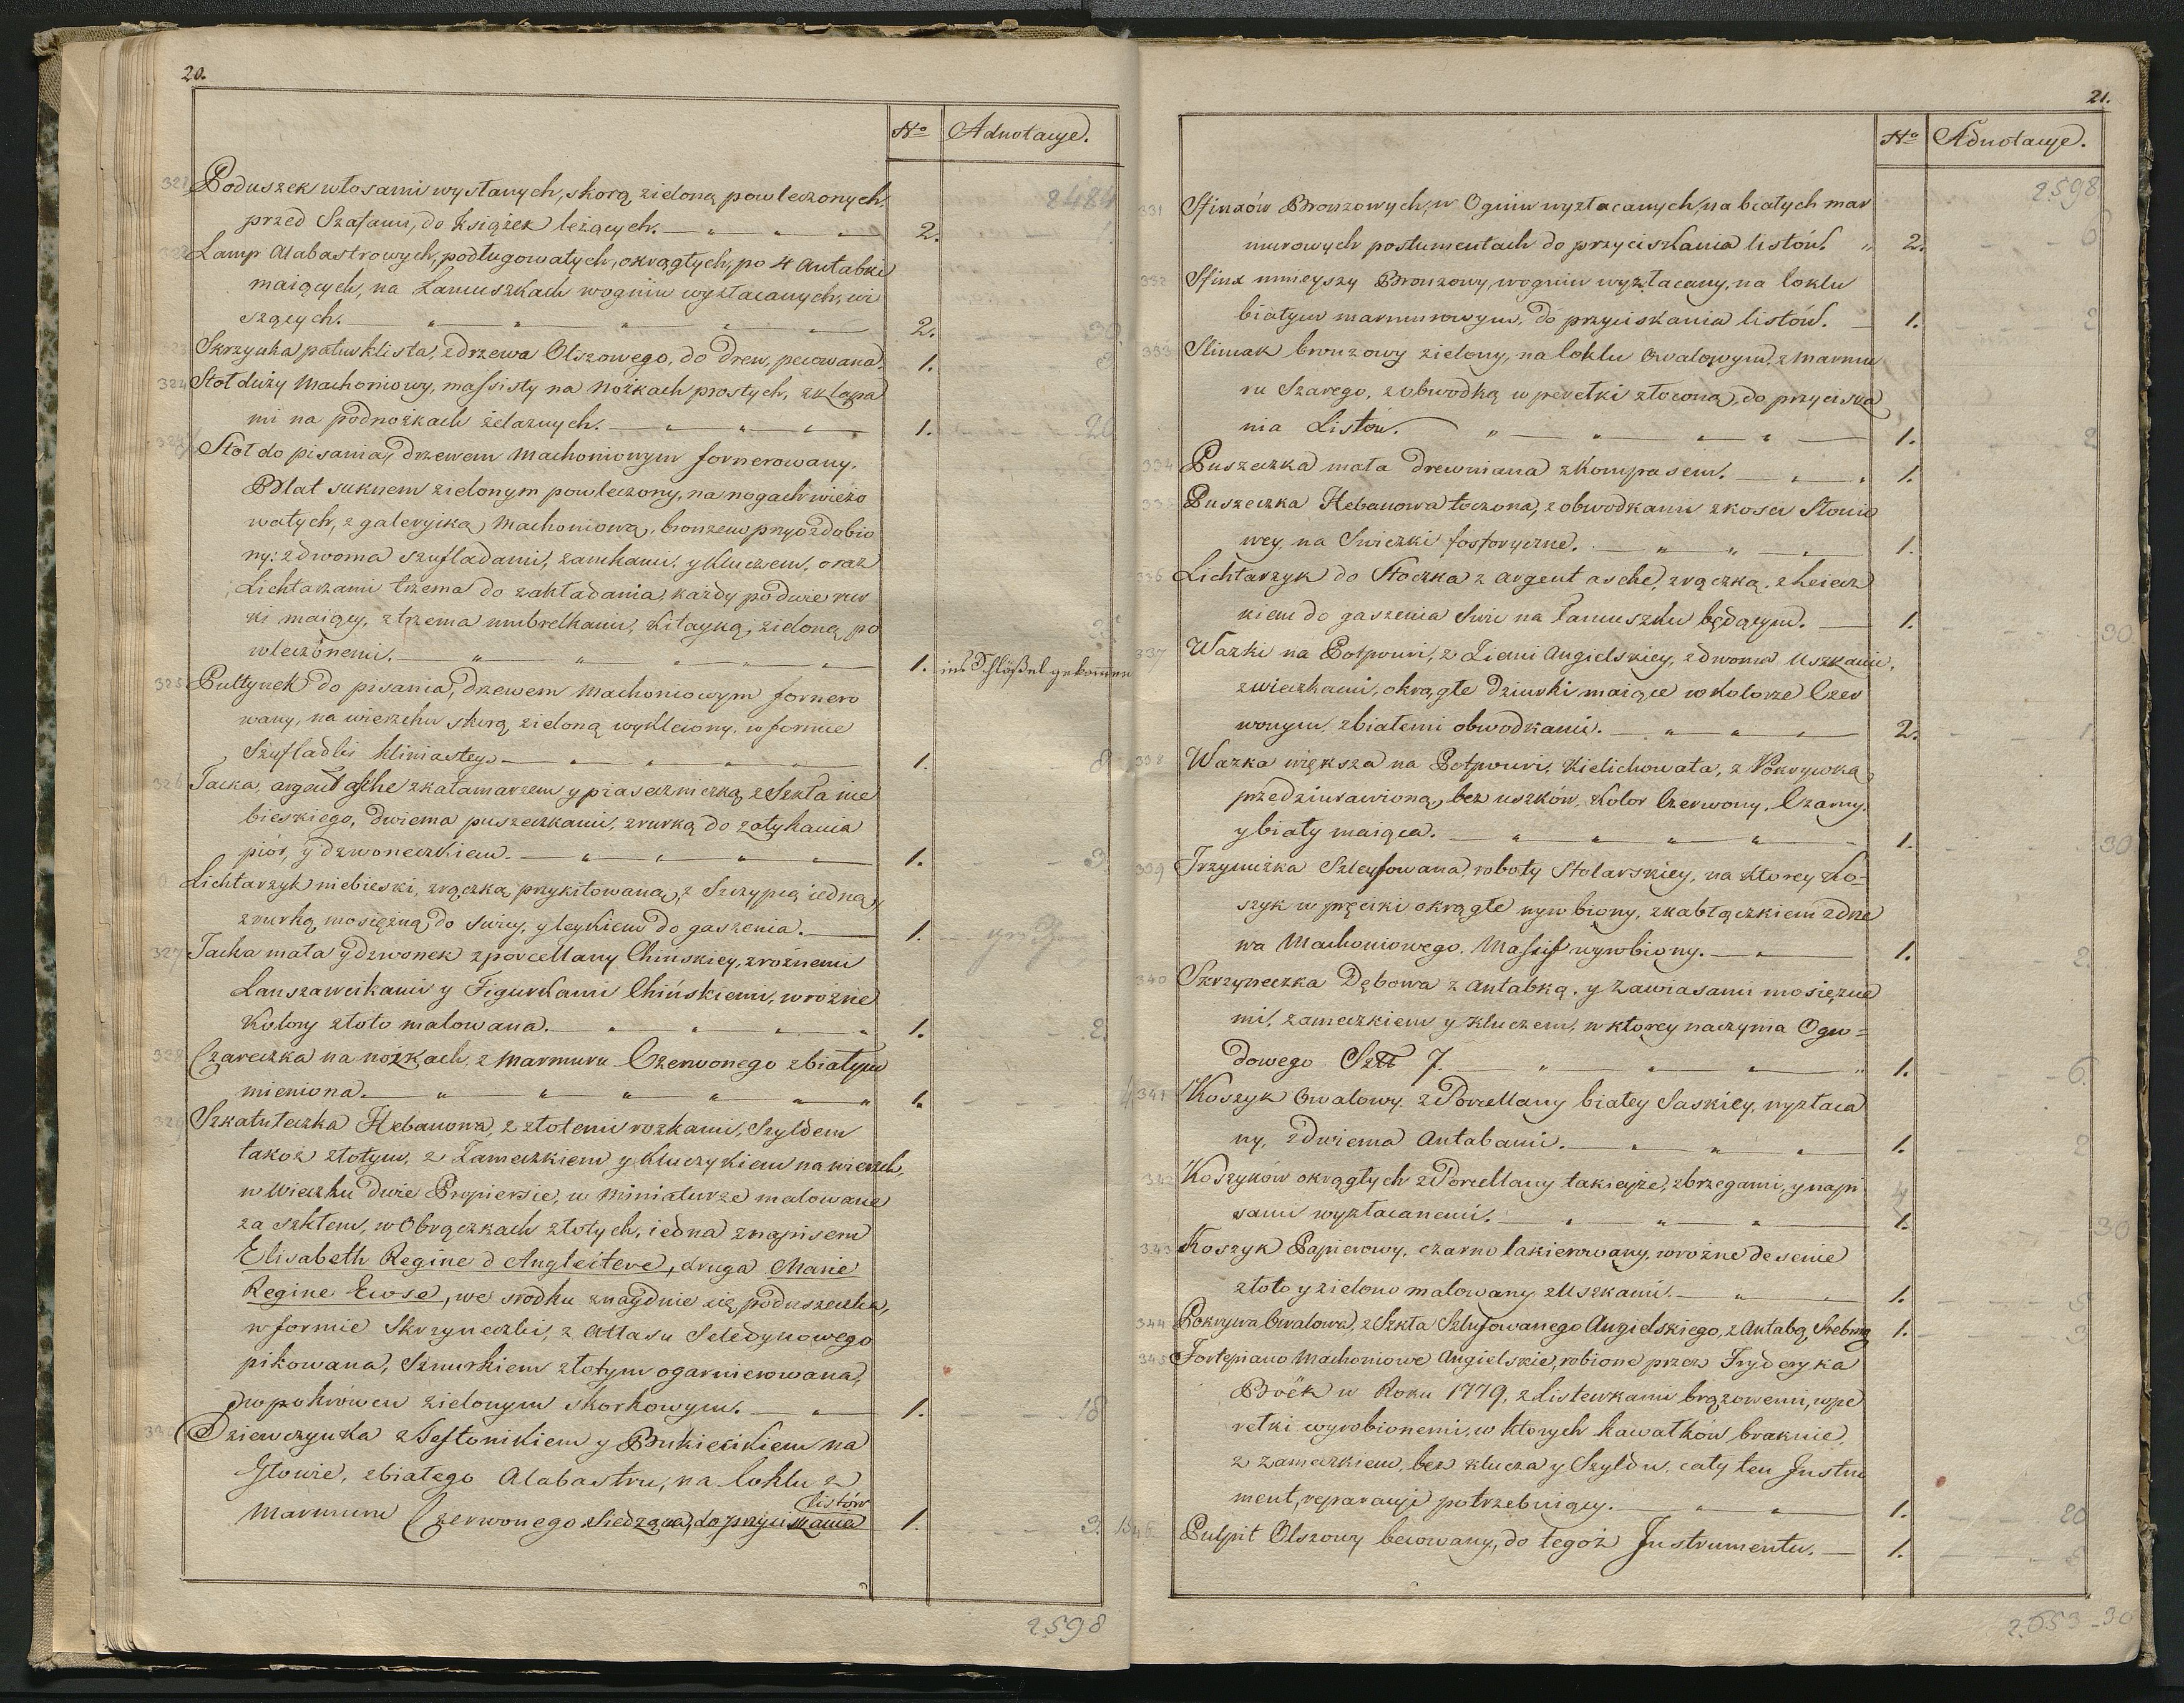 20.
No Adnotacye.
2484
321 Poduszek włosami wysłanych, skorą zieloną powleczonych.
przed Szafami, do Książek leżących. 2. 1.
322 Lamp Alabastrowych, podługowatych, okrągłych, po 4 Antabki
maiących, na Łancuszkach w ogniu wyzłacanych, wi
szących. 2. 30
323 Skrzynka patunklista, z drzewa Olszowego, do drew, pecowana. 1. 3
324 Stoł duży Machoniowy, massisty na Nożkach prostych, z klapa
mi na podnożkach żelaznych. 1. 20
Stoł do pisania, drzewem Machoniowym fornerowany.
Blat suknem zielonym powleczony, na nogach wieżo
watych, z galeryiką Machoniową, bronzem przyozdobio
ny: z dwoma szufladami, zamkami, y Kluczem, oraz
Lichtarzami trzema do zakładania, każdy po dwie rur
ki maiący, z trzema umbrelkami, Kitayką zieloną po
wleczonemi. 1. ins Schlößel gekommen
325 Pultynek do pisania, drzewem Machoniowym fornero
wany, na wierzchu skorą zieloną wykleiony, w formie
Szufladki kliniastey. 1. 8
326 Tacka, argent asche z kałamarzem y piaseczniczką z Szkła nie
bieskiego, dwiema puszeczkami, z rurką do zatykania
piór, y dzwoneczkiem. 1. 3
Lichtarzyk niebieski, z rączką przykitowaną, z Szczypcą iedną,
z rurką mosiężną do swiecy, y leykiem do gaszenia. 1.
327 Tacka mała y dzwonek z porcellany Chińskiey, z rożnemi
Lanszawcikami y Figurkami Chińskiemi, w rożne
Kolory złoto malowana. 1. 2.
328 Czareczka na nożkach, z Marmuru Czerwonego z białym
mieniona. 1. 4
329 Szkatułeczka Hebanowa, z złotemi rozkami, Szyldem
takoż złotym, z Zameczkiem y Kluczykiem na wierzch,
w Wieczku dwie Popiersie, w Miniaturze malowane
za szkłem, w Obrączkach złotych, iedna z napisem
Elisabeth Regine d Angleitere, druga Marie
Regine Ewse, we srodku znaydnie się poduszeczka,
w formie Skrzyneczki, z Attasu Seledynowego
pikowana, Sznurkiem złotym ogarnierowana,
w pokrowcu zielonym skorkowym. 1. 18
330 Dziewczynka z Festonikiem y Bukiecikiem na
Głowie, z białego Alabastru, na loklu z
Marmuru Czerwonego Siedząca, do przyciskania listów 1. 3.
2598
21.
No Adnotacye.
2598
331 Sfinxów Bronzowych, w Ogniu wyzłacanych, na białych mar
murowych postumentach do przyciskania listów. 2. 6
332 Sfinx mnieyszy Bronzowy, w ogniu wyzłacany, na loklu
białym marmurowym, do przyciskania listów. 1. 2
333 Slimak bronzowy zielony, na loklu Owalowym, z Marmu
ru Szarego, z obwodką w perełki złoconą, do przyciska
nia Listów. 1. 2
334 Puszeczka mała drewniana z Kompasem. 1.
335 Puszeczka Hebanowa toczona, z obwodkami z kosci Słonio
wey, na Swieczki fosforyczne. 1.
336 Lichtarzyk do Stoczka z argent asche, z rączką, z leiecz
kiem do gaszenia Swie na łancuszku będącym. 1. 30
337 Wazki na Potpouri, z Ziemi Angielskiey, z dwoma Uszkami,
z wieczkami, okrągłe dziurki maiące w Kolorze Czer
wonym, z białemi obwodkami. 2. 1
338 Wazka większa na Potpouri, Kielichowata, z Pokrywką
przedziurawioną, bez uszków, Kolor Czerwony, Czarny
y biały maiąca. 1. 30
339 Trzymiska Szleyfowana, roboty Stolarskiey, na ktorey Ko=
szyk w pręciki okrągłe wyrobiony, z kabłączkiem z drze
wa Machoniowego. Massif wyrobiony. 1. 2
340 Skrzyneczka Dębowa z Antabką, y Zawiasami mosiężne
mi, zameczkiem y Kluczem, w ktorey naczynia Ogro=
dowego Sztt 7. 1. 6.
341 Koszyk Owalowy z Porcellany białey Saskiey, wyzłaca
ny, z dwiema Antabami. 1. 2
342 Koszyków okrągłych z Porcellany takieyże, z brzegami, y napi
sami wyzłacanemi. 1. 30
343 Koszyk Papierowy, czarno lakierowany, w rożne desenie
złoto y zielono malowany z Uszkami. 1. 5
344 Pokrywa Owalowa, z Szkła Szlufowanego Angielskiego, z Antabą Srebrną 1. 3
345 Fortepiano Machoniowe Angielskie, robione przez Fryderyka
Boëk w Roku 1779, z Listewkami brązowemi, w pe
rełki wyrobionemi, w ktorych kawałków braknie,
z zameczkiem, bez klucza y Szyldu, cały ten Instru
ment, reparacyi potrzebuiący. 1. 20
346 Pulpit Olszowy becowany, do tegoż Instrumentu. 1.
2.653-30